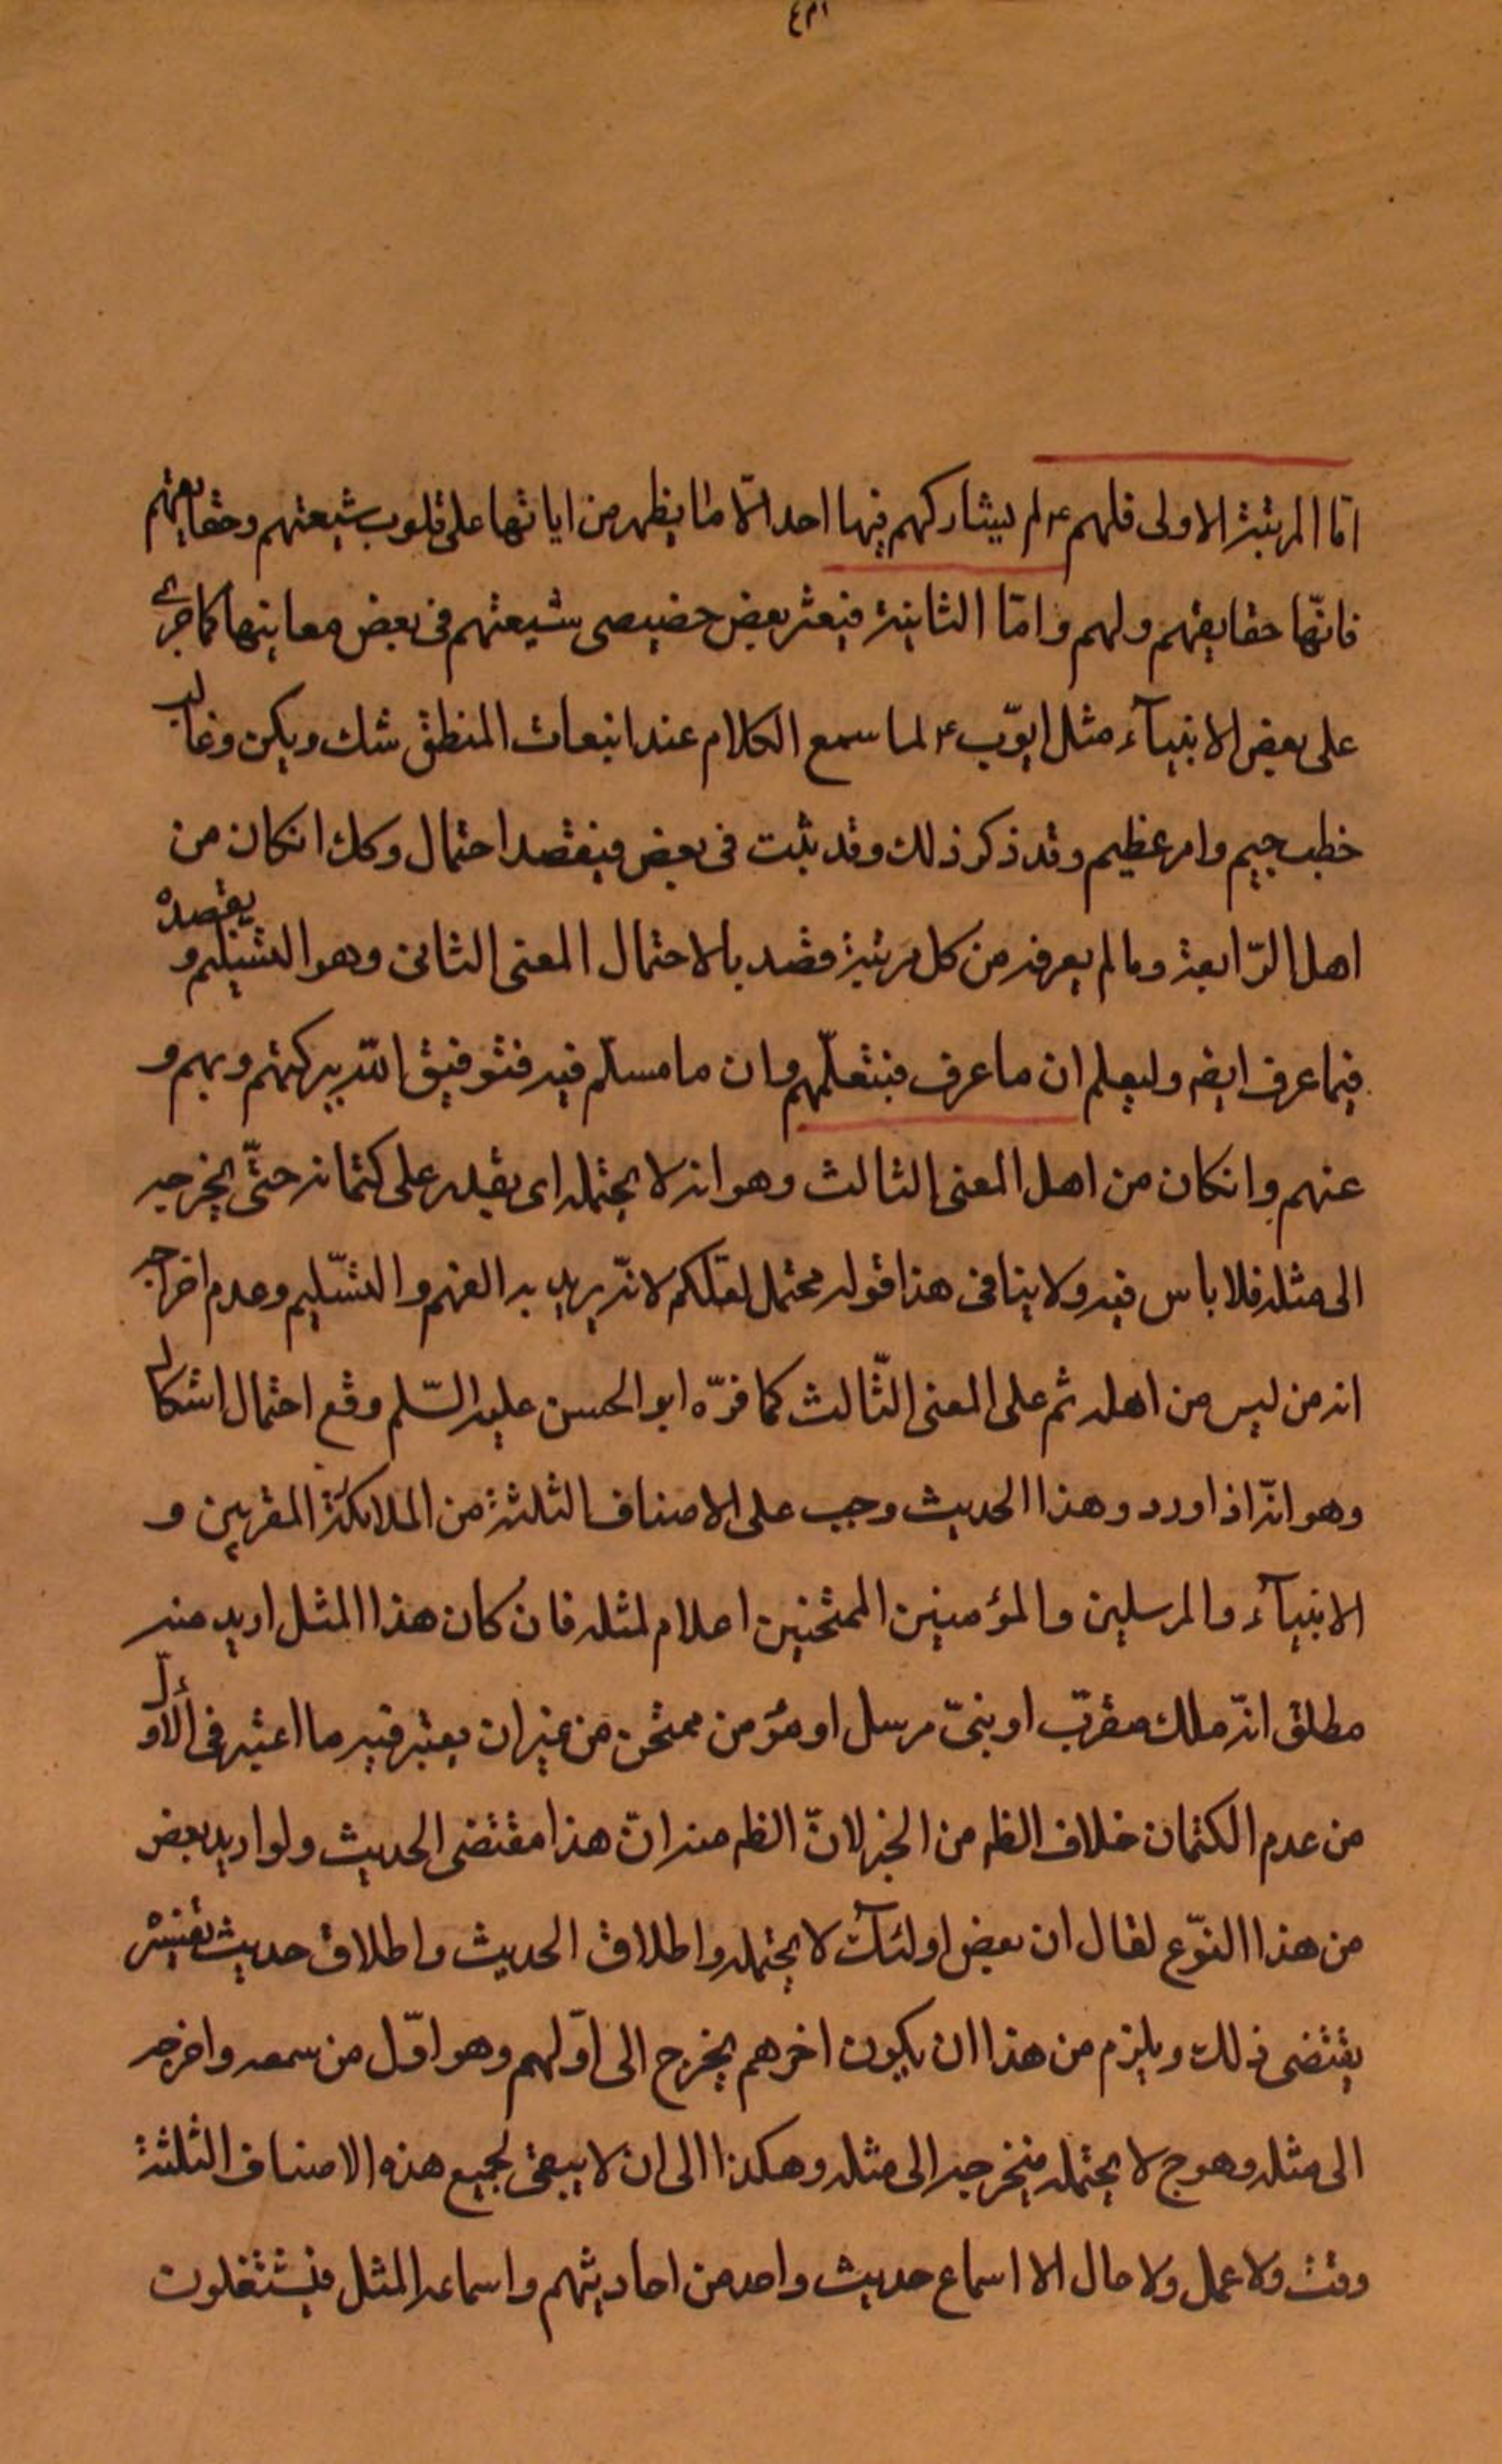 اما المرتبة الاولى فلهم ع لم يشاركهم فيها احد الّا ما يظهر من اياتها على قلوب شيعتهم وحقايقهم
فانّها حقايقهم ولهم وامّا الثانية فيعثر بعض خصيصى شيعتهم فى بعض معاينها كما جرى
على بعض الانبيآء مثل ايّوب ع لما سمع الكلام عند انبعاث المنطق شك وبكى وقال
خطب جسيم وامر عظيم وقد ذكر ذلك وقد يثبت فى بعض فيقصد احتمال وكك انكان من
اهل الرّابعة وما لم يعرفه من كل مرتبة قصد بالاحتمال المعنى الثانى وهو التسليم و يقصده
فيما عرف ايضه وليعلم ان ما عرف فبتعلّمهم وان ما مسلّم فيه فتوفيق اللّه ببركتهم وبهم و
عنهم وانكان من اهل المعنى الثالث وهو انه لا يحتمله اى يقدر على كتمانه حتّى يخرجه
الى مثله فلا باس فيه ولا ينافى هذا قوله محتمل لعلكم لانّه يريد به الفهم والتسّليم وعدم اخراجه
انه من ليس من اهله ثم على المعنى الثّالث كما فرّه ابو الحسن عليه السّلم وقع احتمال اشكال
وهو انّه اذا ورد وهذا الحديث وجب على الاصناف الثلثة من الملائكة المقربين و
الانبيآء والمرسلين والمؤمنين الممتحنين اعلام لمثله فان كان هذا المثل اريد منه
مطلق انّه ملك مقرّب او نبىّ مرسل او مؤمن ممتحن من غير ان يعتبر فيه ما اعتبر فى الأوّل
من عدم الكتمان خلاف الظه من الخبر لانّ الظه منه انّ هذا مقتضى الحديث ولو اريد بعض
من هذا النوّع لقال ان بعض اولئك لا يحتمله واطلاق الحديث واطلاق حديث تفسير
يقتضى ذلك ويلزم من هذا ان يكون اخرهم يخرج الى اوّلهم وهو اوّل من سمعه واخرجه
الى مثله وهو ح لا يحتمله فيخرجه الى مثله وهكذا الى ان لا يبقى لجميع هذه الاصناف الثلثة
وقت ولا عمل ولا حال الا اسماع حديث واحد من احاديثهم واسماعه المثل فيشتغلون